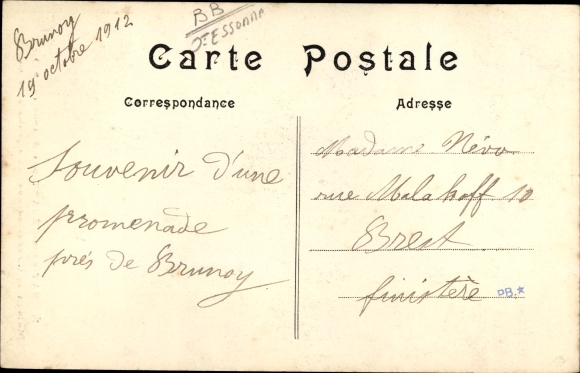 Brunoy
19 octobre 1912
BB
Dt ESSONNA
Carte Postale
Correspondance
Adresse
Souvenir d'une
promenade
près de Brunoy
Madame Névo
rue Malakoff 10
Brest
finistère
B.*